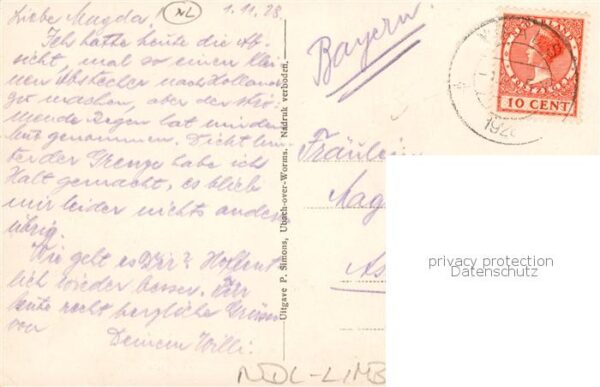 Liebe Magda!
NL
1.11.28.
Ich hatte heute die Ab-
sicht, mal so einen klei-
nen Abstecher nach Holland
zu machen, aber der strö-
mende Regen hat mir den
genommen. Dicht hin-
ter der Grenze habe ich
Halt gemacht, es blieb
mir leider nichts anderes
übrig.
Wie geht es Dir? Hoffent-
lich wieder besser. Für
heute recht herzliche Grüsse
von
Deinem Willi.
Uitgave P. Simons, Ubach-over-Worms. Nadruk verboden.
Bayern.
Fräulein
Mag
As
NEDERLAND
10 CENT
192
privacy protection
Datenschutz
NDL-LIMB